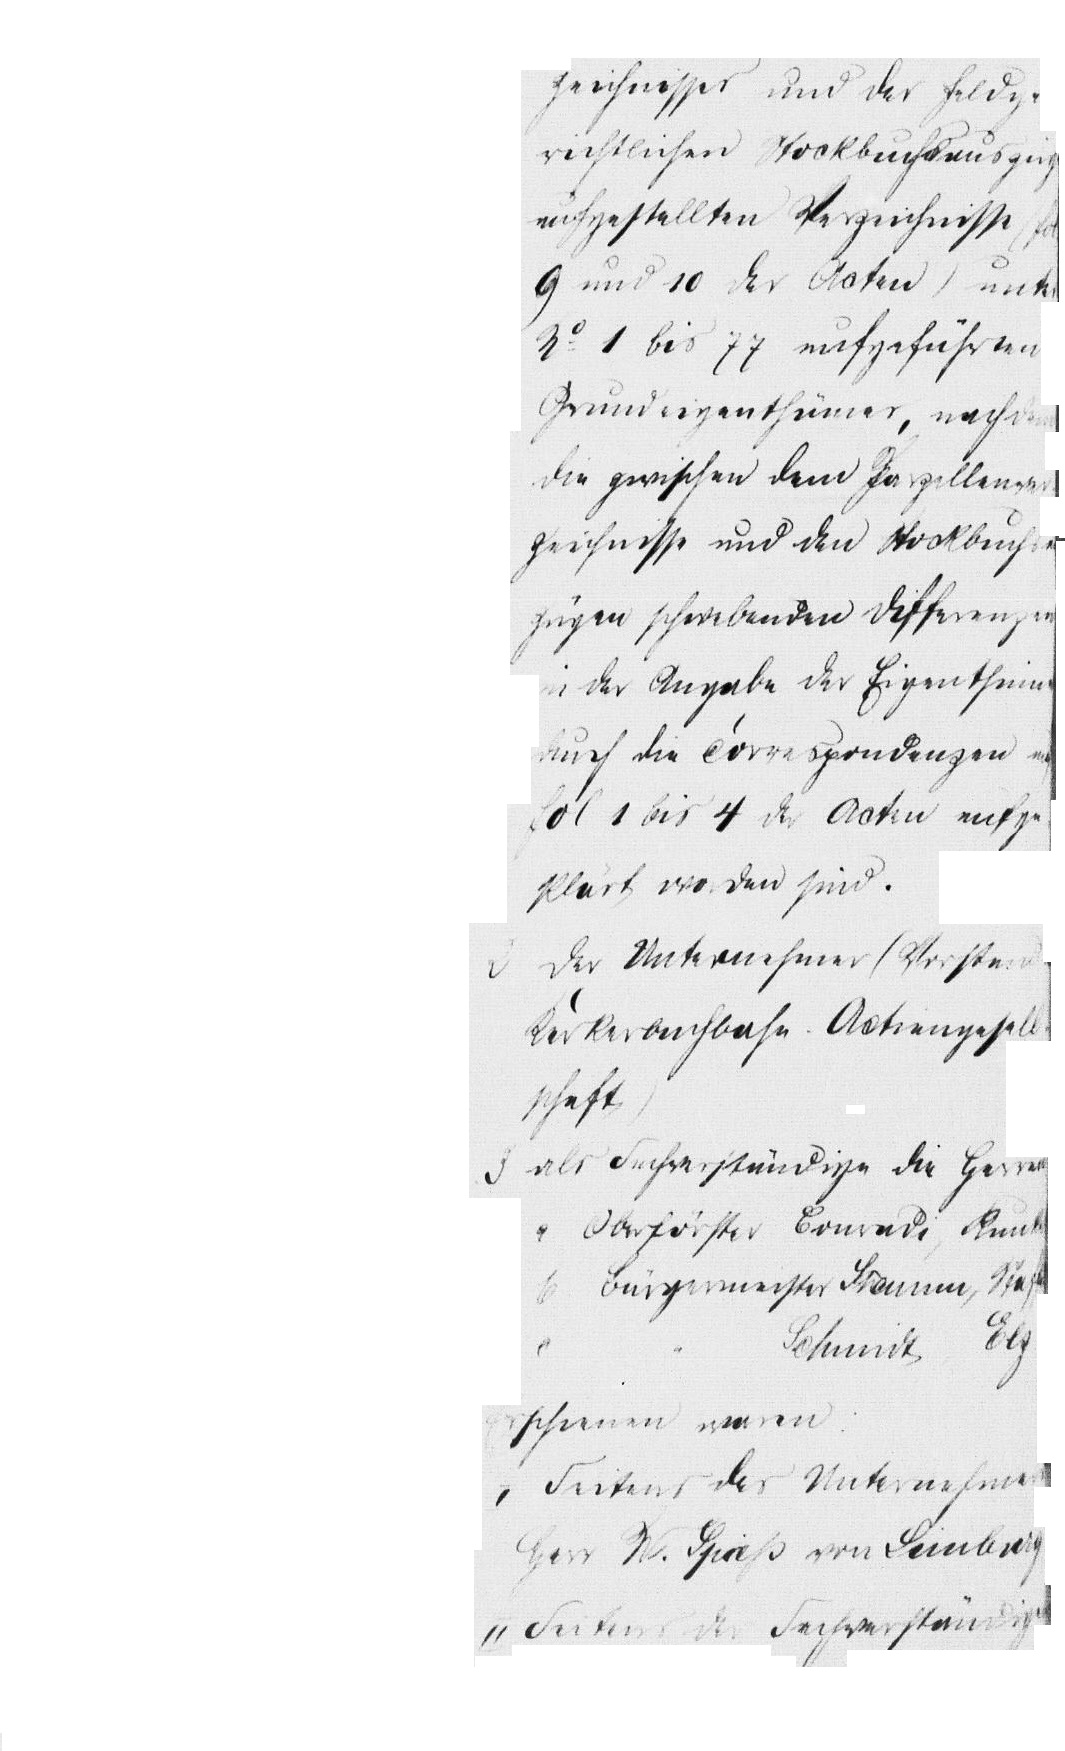 zeichnisses und der feldge-
richtlichen Stockbuchsauszüge
aufgestellten Verzeichnisse (fol
9 und 10 der Acten) unter
No 1 bis 77 aufgeführten
Grundeigenthümer, nachdem
die zwischen dem Parzellenver-
zeichnisse und den Stockbuchsa
zügen schwebenden Differenzen
in der Angabe der Eigenthüme
durch die Correspondenzen auf
fol 1 bis 4 der Acten aufge-
klärt worden sind.
2 der Unternehmer (Vorstand
Kerkerbachbahn-Actiengesell-
schaft)
3 als Sachverständige die Herren
a Oberförster Conradi,
b Bürgermeister
c " Schmidt, Elz
Erschienen waren:
I Seitens des Unternehmers
Herr W. Spieß von Limburg
II Seitens der Sachverständige